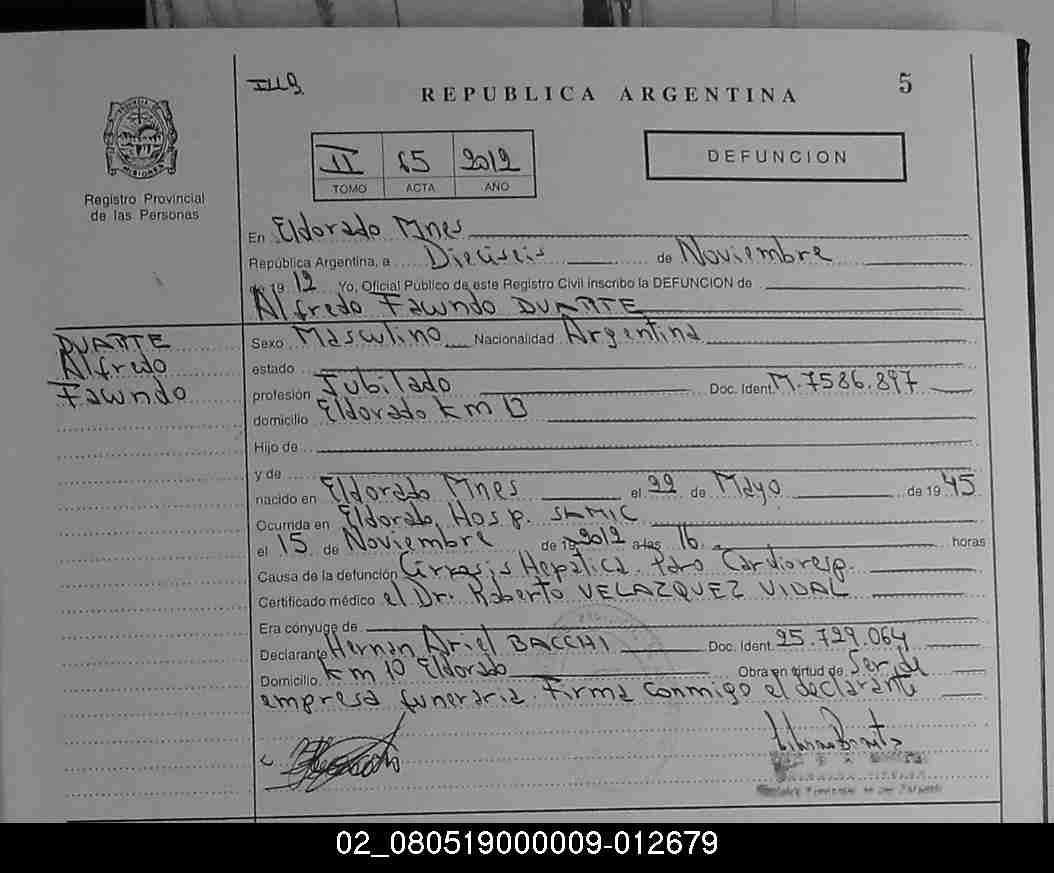 5
REPUBLICA ARGENTINA
II 65 2012
TOMO ACTA AÑO
DEFUNCION
PROVINCIA DE MISIONES
Registro Provincial
de las Personas
En Eldorado Mnes
República Argentina, a Dieciseis de Noviembre
de 19 12 Yo, Oficial Público de este Registro Civil inscribo la DEFUNCION de
Alfredo Facundo DUARTE
DUARTE
Alfredo
Facundo
Sexo Masculino Nacionalidad Argentina
estado
profesión Jubilado Doc. Ident. M. 7586.897
domicilio Eldorado km 13
Hijo de
y de
nacido en Eldorado Mnes el 22 de Mayo de 19 45
Ocurrida en Eldorado, Hosp. SAMIC
el 15 de Noviembre de 19 2012 a las 16 horas
Causa de la defunción Cirrosis Hepatica. Paro Cardioresp.
Certificado médico el Dr. Roberto VELAZQUEZ VIDAL
Era cónyuge de
Declarante Hernan Ariel BACCHI Doc. Ident. 25.729.064
Domicilio Km 10 Eldorado Obra en virtud de Ser de
empresa funeraria Firma conmigo el declarante
02_080519000009-012679